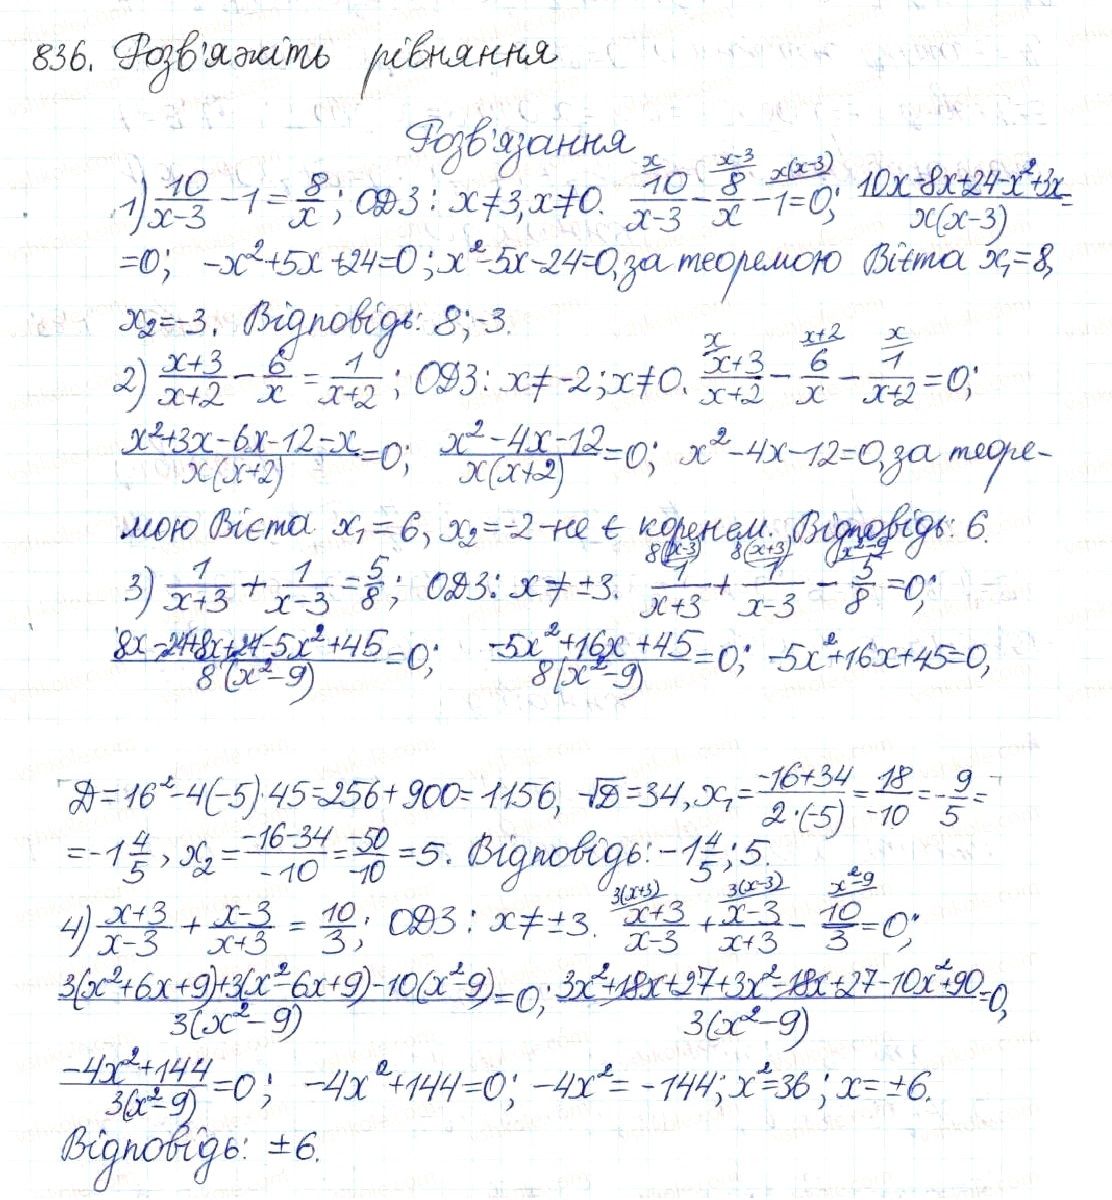 836. Розв'яжіть рівняння
Розв'язання
1) 10/(x-3) - 1 = 8/x; ОДЗ: x≠3, x≠0. 10/(x-3) (x) - 8/x (x-3) - 1 (x(x-3)) = 0; (10x-8x+24-x²+3x)/(x(x-3)) =
=0; -x²+5x+24=0; x²-5x-24=0, за теоремою Вієта x₁=8,
x₂=-3. Відповідь: 8; -3.
2) (x+3)/(x+2) - 6/x = 1/(x+2); ОДЗ: x≠-2; x≠0. (x+3)/(x+2) (x) - 6/x (x+2) - 1/(x+2) (x) = 0;
(x²+3x-6x-12-x)/(x(x+2)) = 0; (x²-4x-12)/(x(x+2)) = 0; x²-4x-12=0, за теоре-
мою Вієта x₁=6, x₂=-2 - не є коренем. Відповідь: 6.
3) 1/(x+3) + 1/(x-3) = 5/8; ОДЗ: x≠±3. 1/(x+3) (8(x-3)) + 1/(x-3) (8(x+3)) - 5/8 (x²-9) = 0;
(8x-24+8x+24-5x²+45)/(8(x²-9)) = 0; (-5x²+16x+45)/(8(x²-9)) = 0; -5x²+16x+45=0,
Д=16²-4(-5)·45=256+900=1156, √Д=34, x₁=(-16+34)/(2·(-5)) = 18/-10 = -9/5 =
=-1 4/5, x₂=(-16-34)/-10 = -50/-10 = 5. Відповідь: -1 4/5; 5.
4) (x+3)/(x-3) + (x-3)/(x+3) = 10/3; ОДЗ: x≠±3. (x+3)/(x-3) (3(x+3)) + (x-3)/(x+3) (3(x-3)) - 10/3 (x²-9) = 0;
(3(x²+6x+9)+3(x²-6x+9)-10(x²-9))/(3(x²-9)) = 0; (3x²+18x+27+3x²-18x+27-10x²+90)/(3(x²-9)) = 0,
(-4x²+144)/(3(x²-9)) = 0; -4x²+144=0; -4x²=-144; x²=36; x=±6.
Відповідь: ±6.